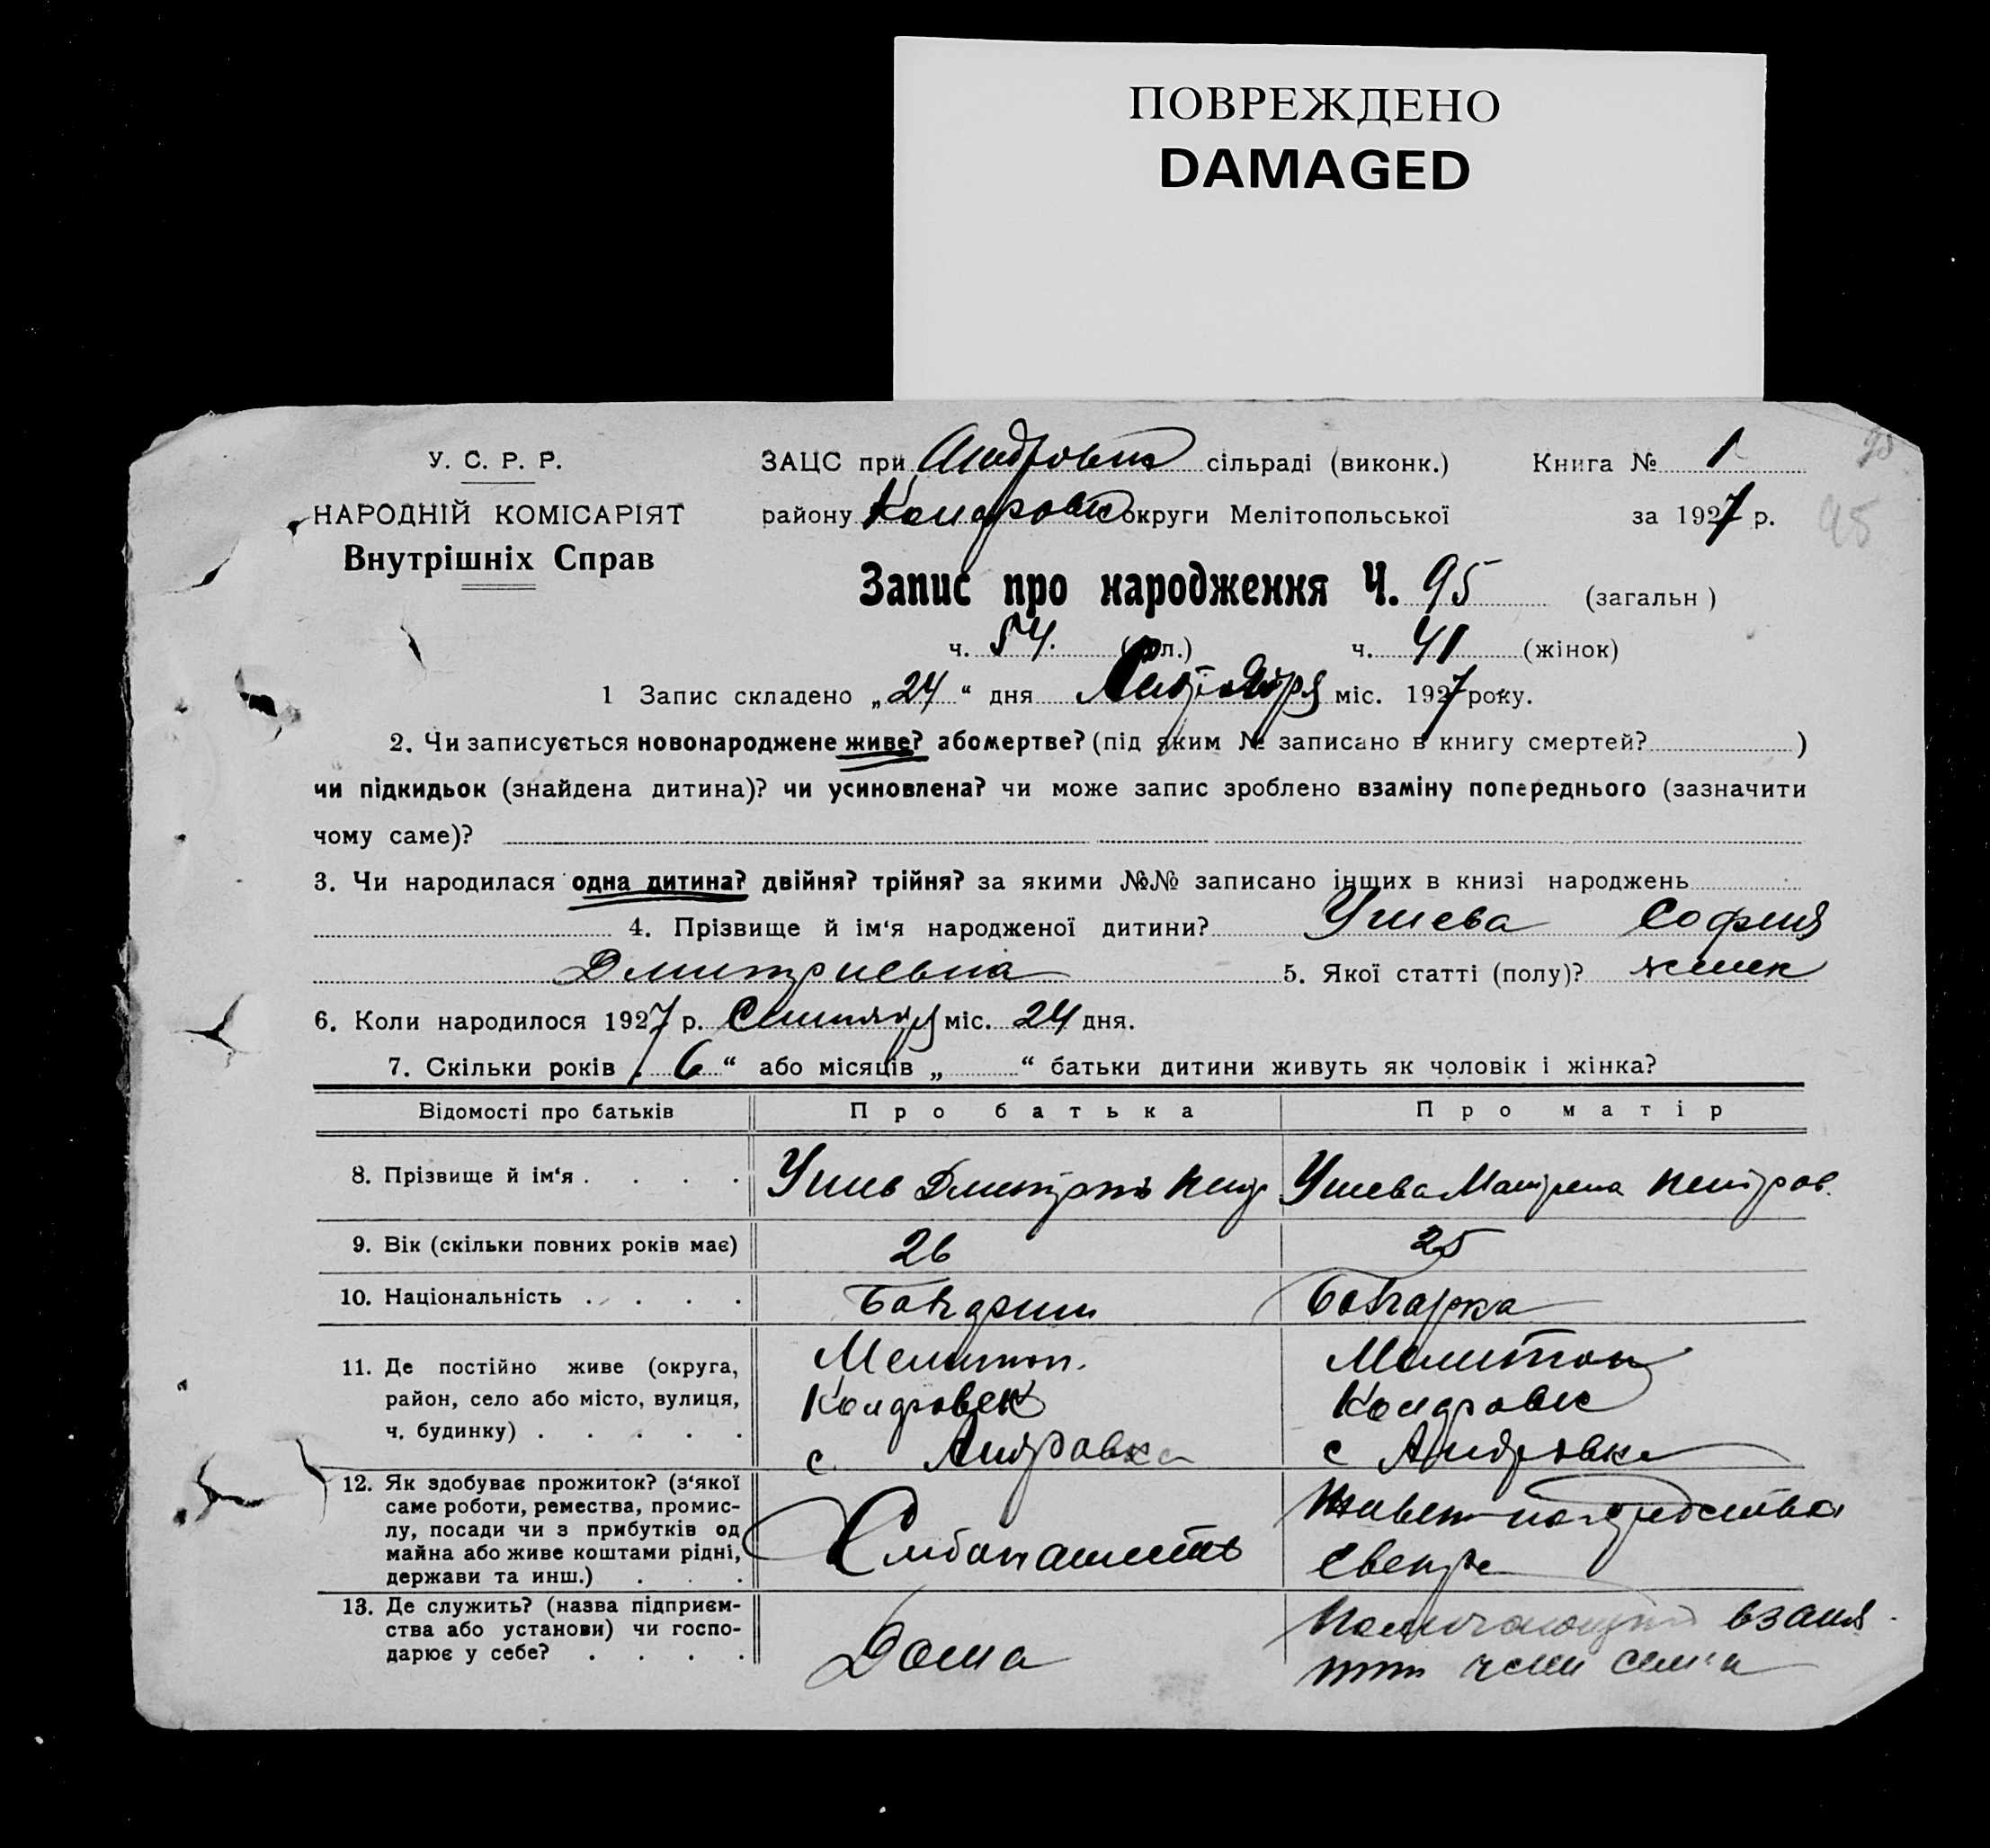 ПОВРЕЖДЕНО
DAMAGED
У. С. Р. Р.
НАРОДНІЙ КОМІСАРІЯТ
Внутрішніх Справ
ЗАЦС при сільраді (виконк.) Книга № 1
району округи Мелітопольської за 1927 р.
95
Запис про народження Ч. 95 (загальн)
ч. 54. ч. 41 (жінок)
1 Запис складено „24“ дня міс. 1927 року.
2. Чи записується новонароджене живе? або мертве? (під яким № записано в книгу смертей? )
чи підкидьок (знайдена дитина)? чи усиновлена? чи може запис зроблено взаміну попереднього (зазначити
чому саме)?
3. Чи народилася одна дитина? двійня? трійня? за якими №№ записано інших в книзі народжень
4. Прізвище й ім‘я народженої дитини? Ушева София
Дмитриевна 5. Якої статті (полу)? женск
6. Коли народилося 1927 р. Сентября міс. 24 дня.
7. Скільки років „6“ або місяців „ “ батьки дитини живуть як чоловік і жінка?
Відомості про батьків Про батька Про матір
8. Прізвище й ім‘я . . . . Ушев Дмитрий Ушева Матрена Петров.
9. Вік (скільки повних років має) 26 25
10. Національність . . . . Болгарин Болгарка
11. Де постійно живе (округа, район, село або місто, вулиця, ч. будинку) . . . . .
Мелитоп. Мелитоп
с Андровка с Андровка
12. Як здобуває прожиток? (з‘якої саме роботи, ремества, промислу, посади чи з прибутків од майна або живе коштами рідні, держави та инш.) . . .
Хлебопашеств Живет на средства
свекра
13. Де служить? (назва підприємства або установи) чи господарює у себе? . . . .
Дома